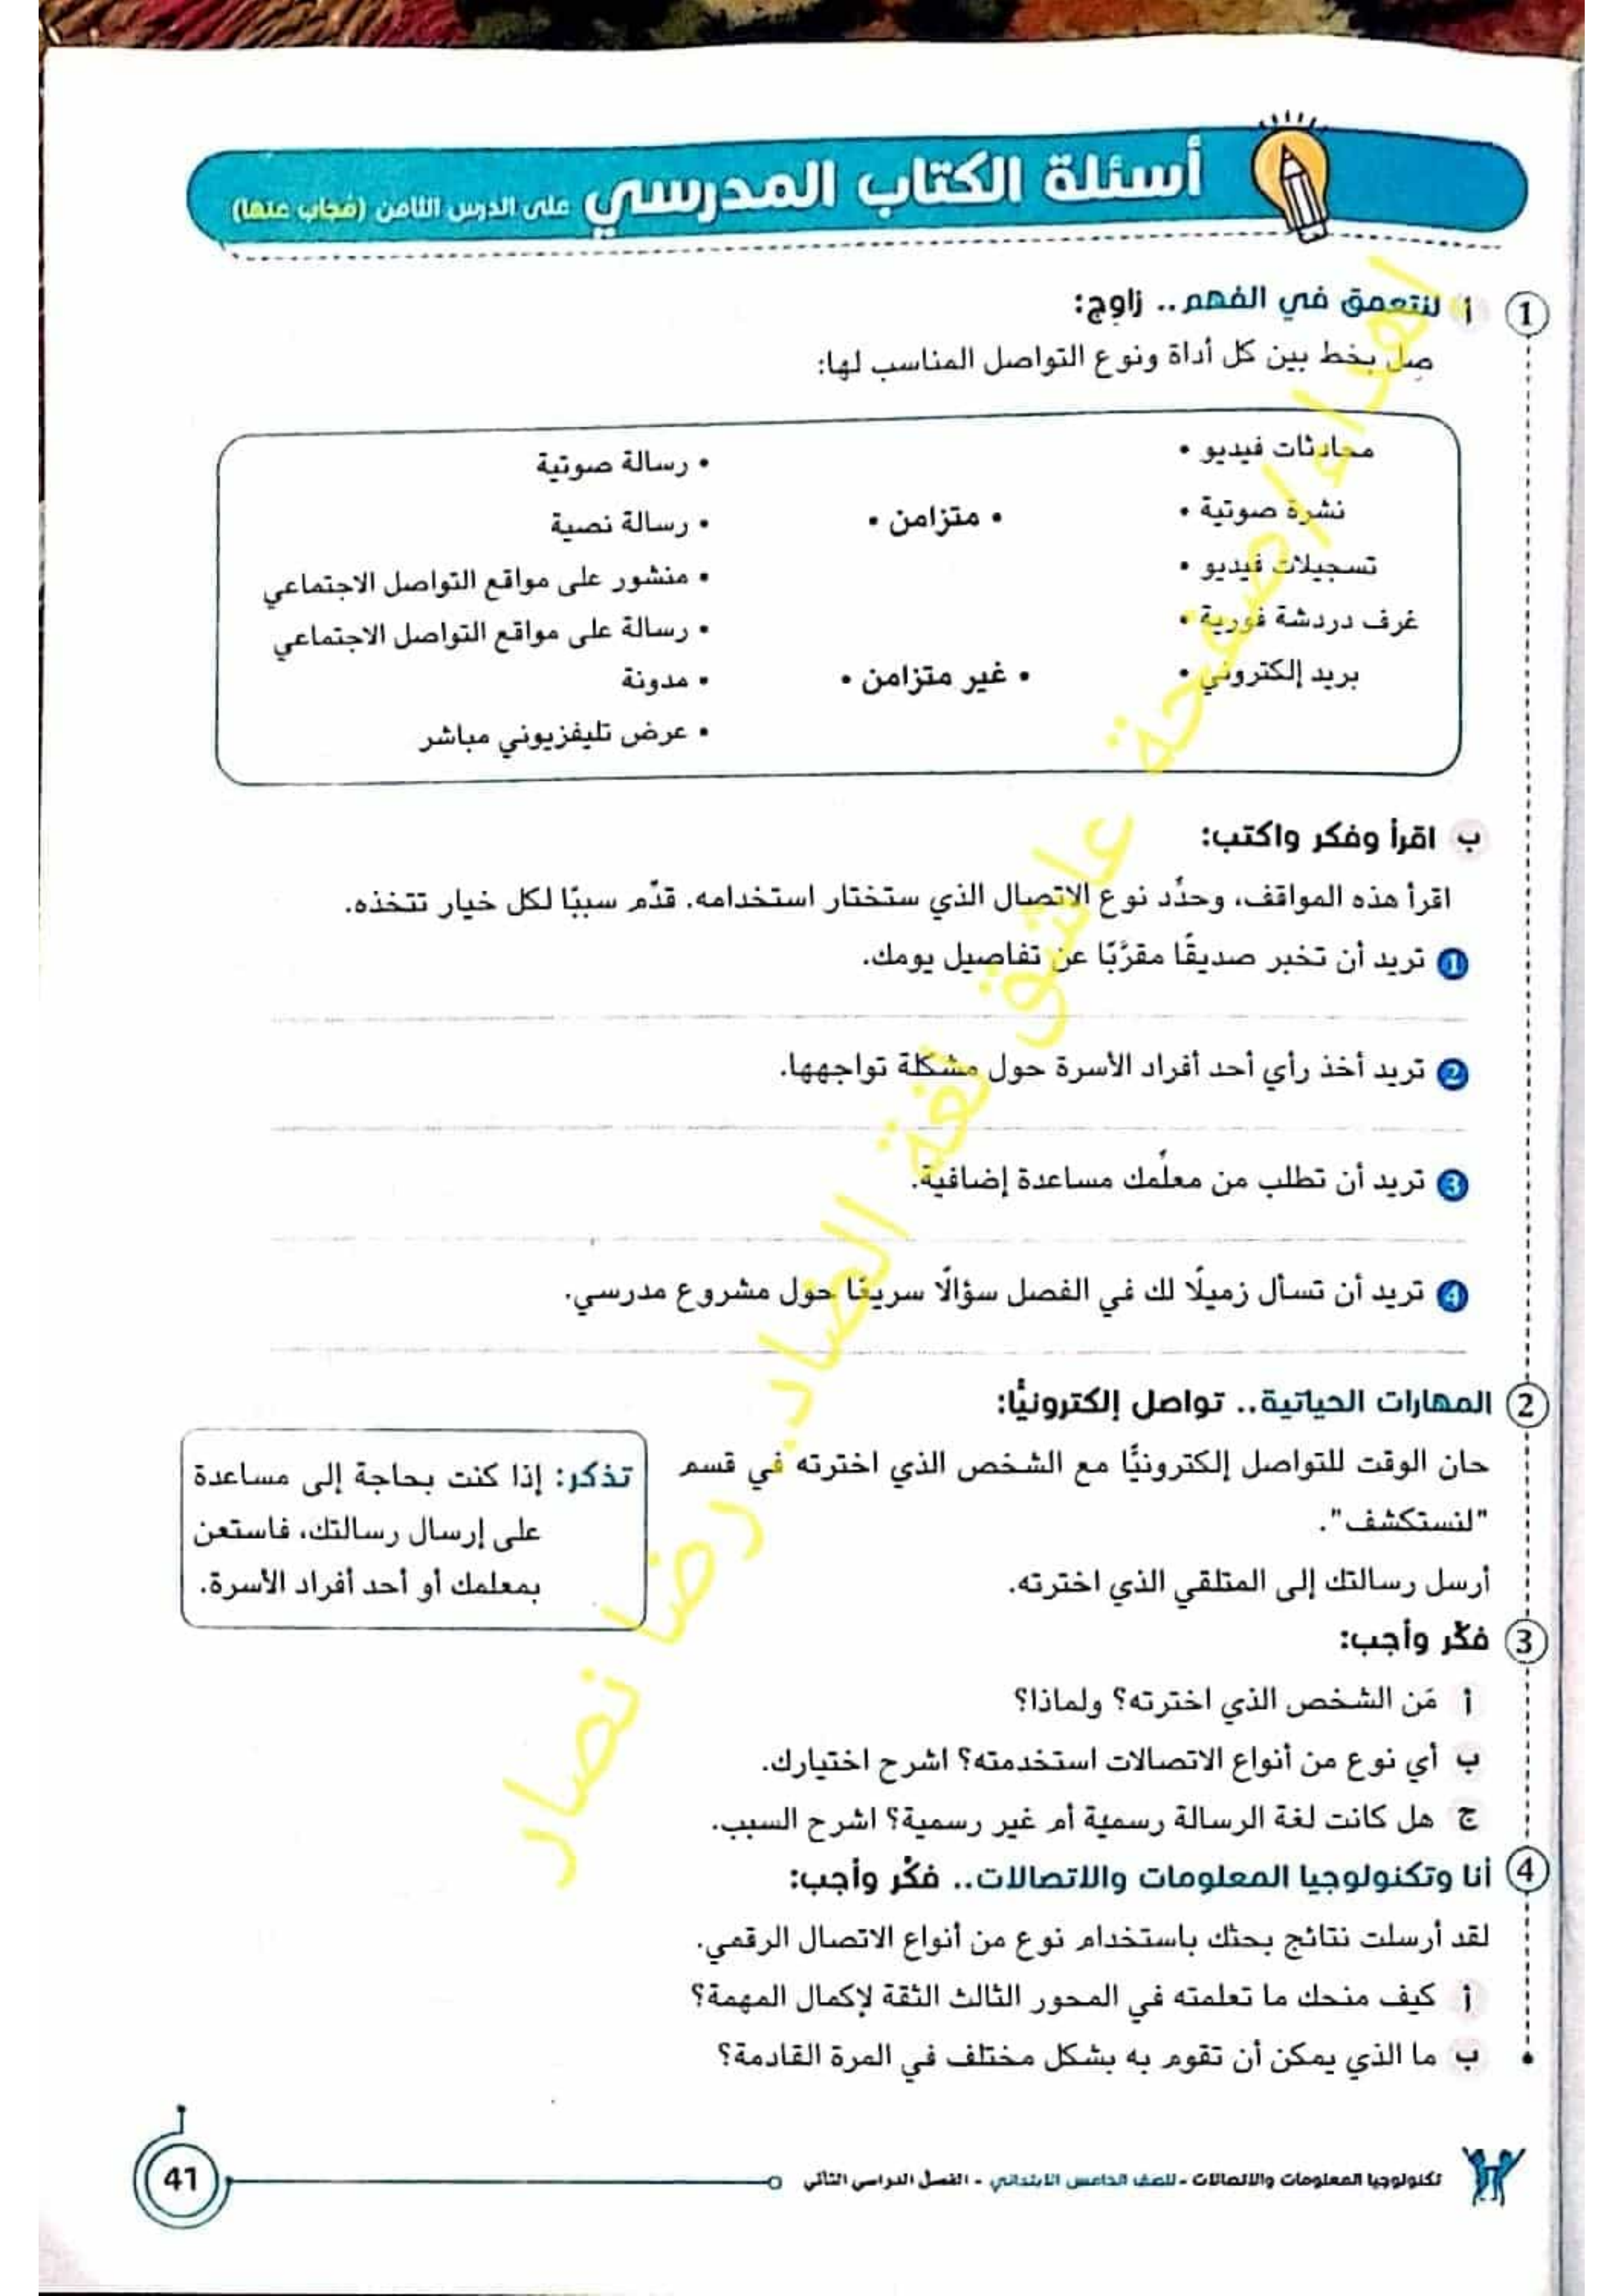 أسئلة الكتاب المدرسي على الدرس الثامن (مُجاب عنها)
1 أ لنتعمق في الفهم.. زاوِج:
صِل بخط بين كل أداة ونوع التواصل المناسب لها:
محادثات فيديو •
• رسالة صوتية
نشرة صوتية •
• متزامن •
• رسالة نصية
تسجيلات فيديو •
• منشور على مواقع التواصل الاجتماعي
غرف دردشة فورية •
• رسالة على مواقع التواصل الاجتماعي
بريد إلكتروني •
• غير متزامن •
• مدونة
• عرض تليفزيوني مباشر
ب اقرأ وفكر واكتب:
اقرأ هذه المواقف، وحدِّد نوع الاتصال الذي ستختار استخدامه. قدِّم سببًا لكل خيار تتخذه.
1 تريد أن تخبر صديقًا مقرَّبًا عن تفاصيل يومك.
2 تريد أخذ رأي أحد أفراد الأسرة حول مشكلة تواجهها.
3 تريد أن تطلب من معلِّمك مساعدة إضافية.
4 تريد أن تسأل زميلًا لك في الفصل سؤالًا سريعًا حول مشروع مدرسي.
2 المهارات الحياتية.. تواصل إلكترونيًّا:
حان الوقت للتواصل إلكترونيًّا مع الشخص الذي اخترته في قسم
"لنستكشف".
أرسل رسالتك إلى المتلقي الذي اخترته.
تذكر: إذا كنت بحاجة إلى مساعدة
على إرسال رسالتك، فاستعن
بمعلمك أو أحد أفراد الأسرة.
3 فكِّر وأجب:
أ مَن الشخص الذي اخترته؟ ولماذا؟
ب أي نوع من أنواع الاتصالات استخدمته؟ اشرح اختيارك.
ج هل كانت لغة الرسالة رسمية أم غير رسمية؟ اشرح السبب.
4 أنا وتكنولوجيا المعلومات والاتصالات.. فكِّر وأجب:
لقد أرسلت نتائج بحثك باستخدام نوع من أنواع الاتصال الرقمي.
أ كيف منحك ما تعلمته في المحور الثالث الثقة لإكمال المهمة؟
ب ما الذي يمكن أن تقوم به بشكل مختلف في المرة القادمة؟
تكنولوجيا المعلومات والاتصالات - للصف الخامس الابتدائي - الفصل الدراسي الثاني
41
إهداء/صفحة عاشق لغة الضاد. رضا نصار